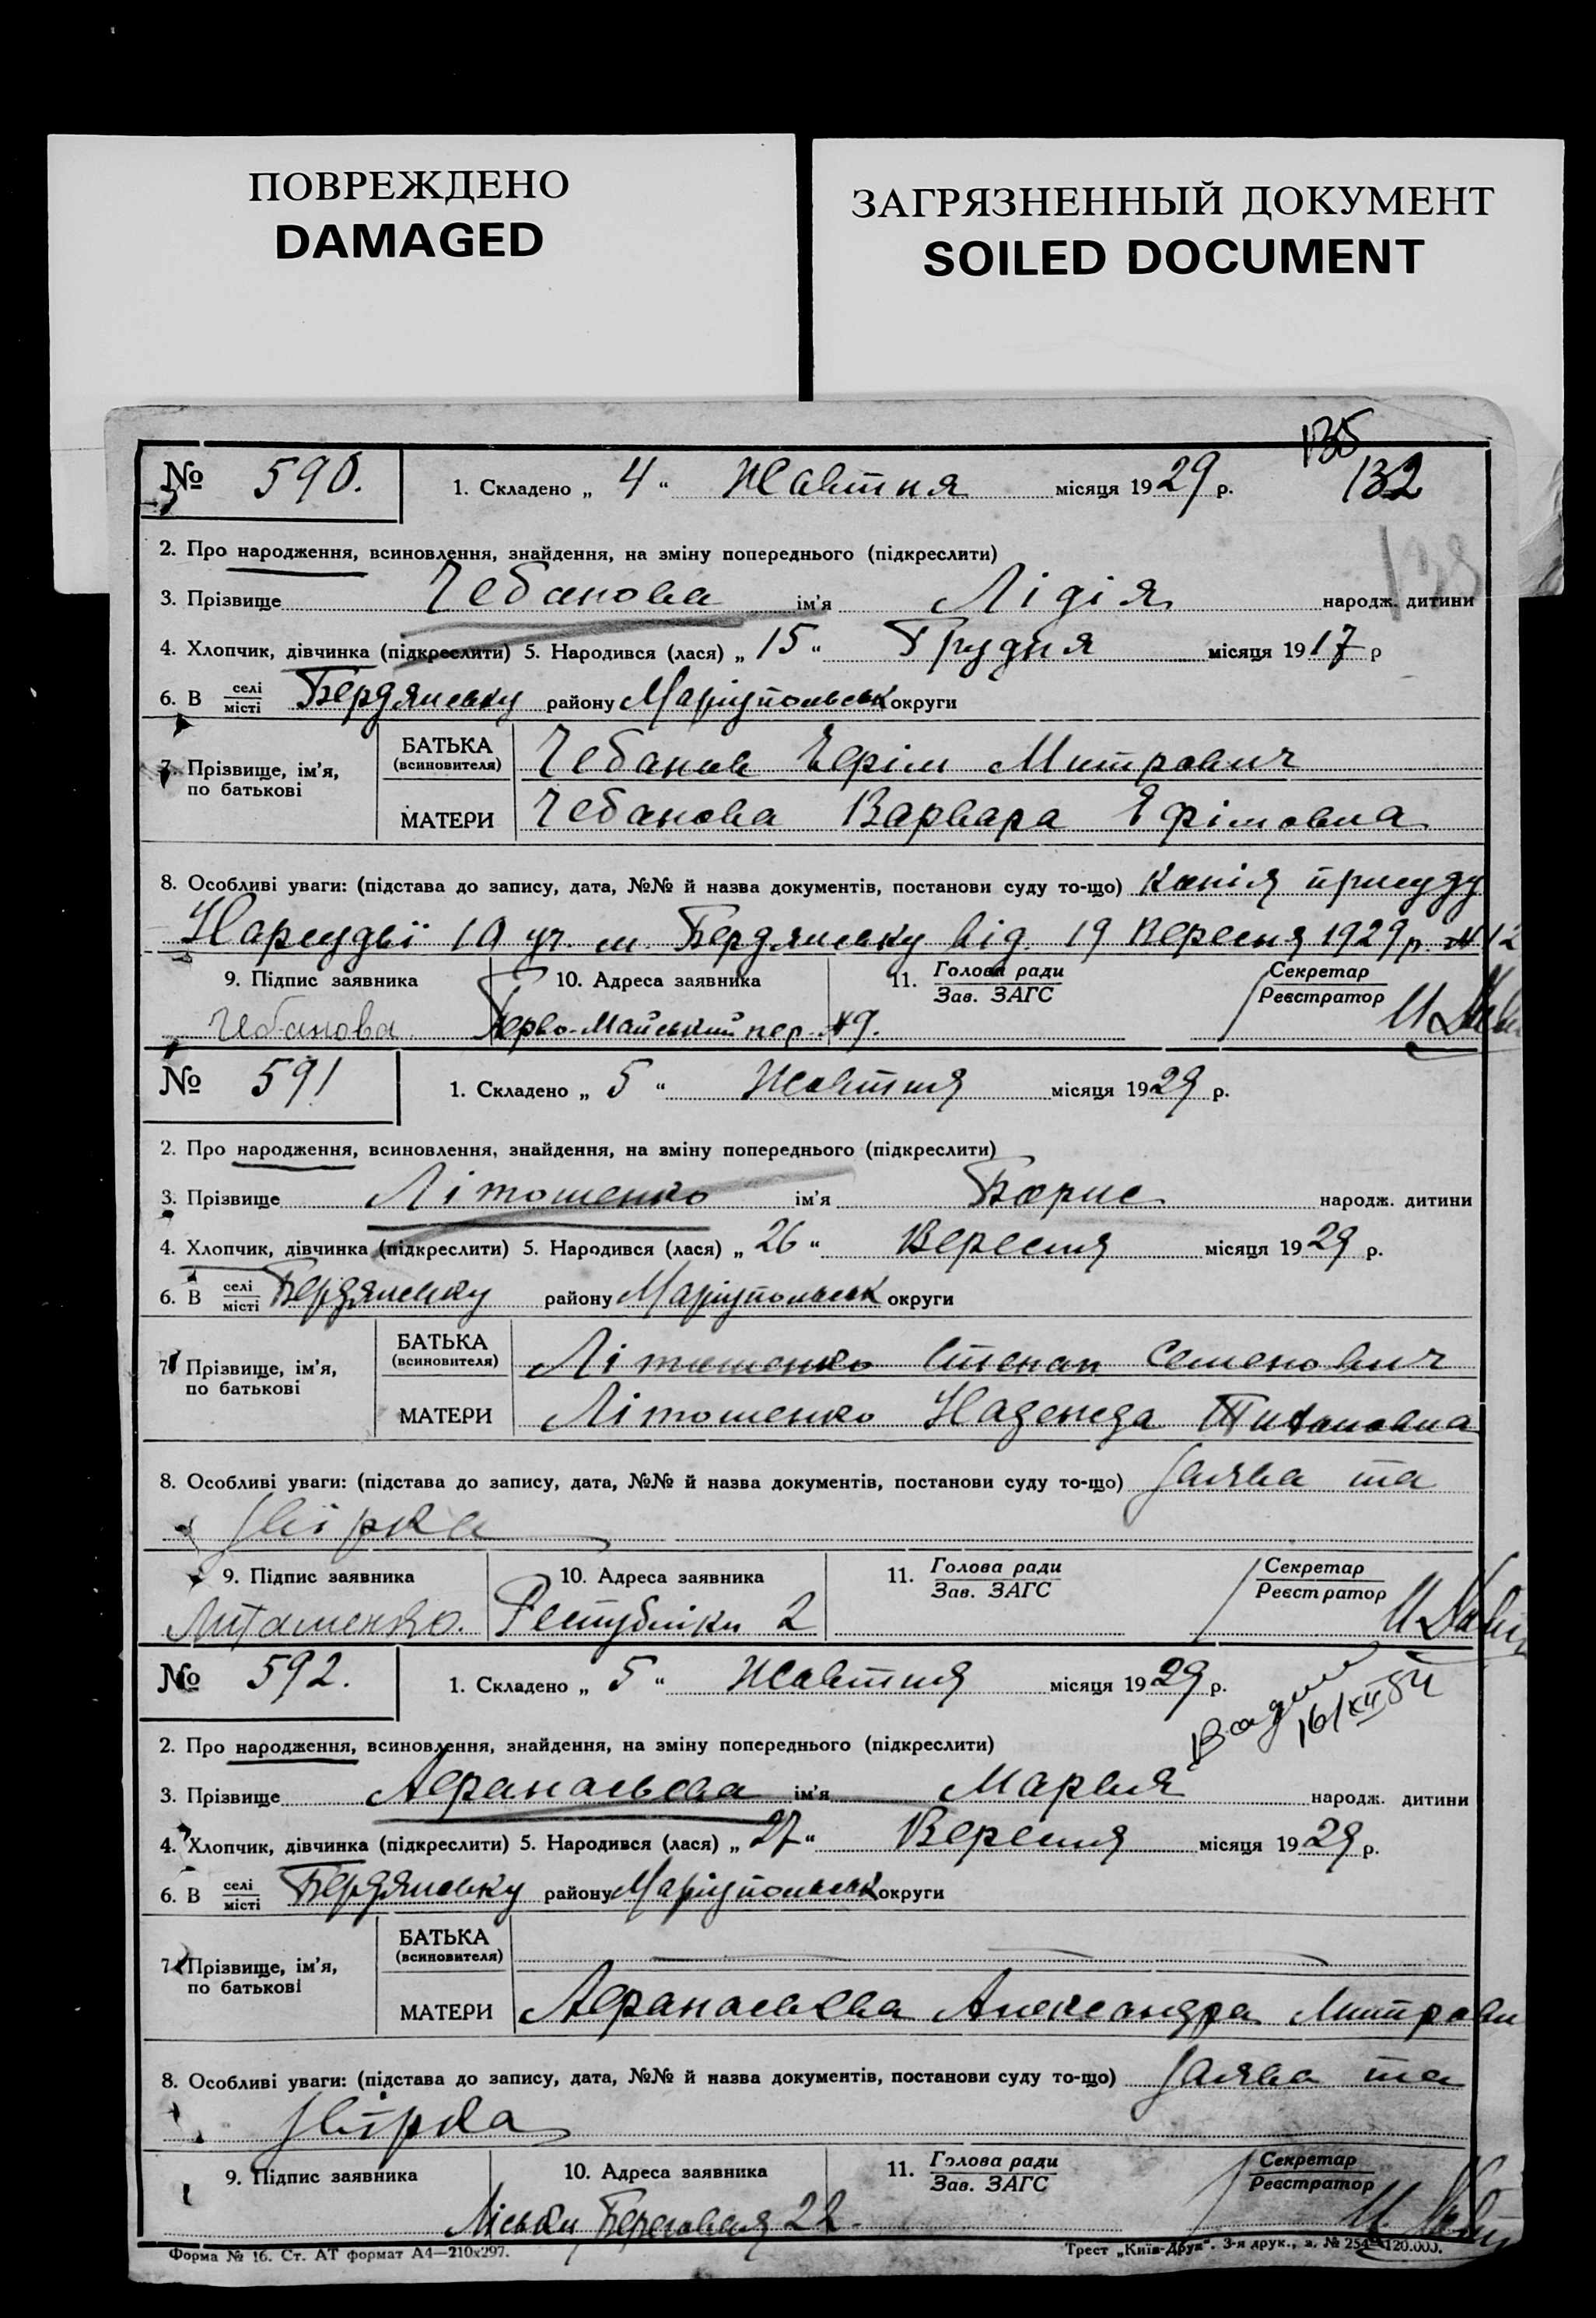 ПОВРЕЖДЕНО
DAMAGED
ЗАГРЯЗНЕННЫЙ ДОКУМЕНТ
SOILED DOCUMENT
135
132
138
№ 590.
1. Складено „ 4 “ Жовтня місяця 1929 р.
2. Про народження, всиновлення, знайдення, на зміну попереднього (підкреслити)
3. Прізвище Чебанова ім’я Лідія народж. дитини
4. Хлопчик, дівчинка (підкреслити) 5. Народився (лася) „ 15 “ Грудня місяця 1917 р
6. В селі місті Бердянську району Маріупольськ округи
7. Прізвище, ім’я, по батькові
БАТЬКА (всиновителя) Чебанов Єфім Митрович
МАТЕРИ Чебанова Варвара Єфімовна
8. Особливі уваги: (підстава до запису, дата, №№ й назва документів, постанови суду то-що) Копія присуду
Нарсудьї 10 уч. м. Бердянську від. 19 Вересня 1929 р. № 12
9. Підпис заявника 10. Адреса заявника 11. Голова ради Зав. ЗАГС Секретар Реєстратор
Чебанова Перво-Майський пер. №9.
№ 591
1. Складено „ 5 “ Жовтня місяця 1929 р.
2. Про народження, всиновлення, знайдення, на зміну попереднього (підкреслити)
3. Прізвище Літошенко ім’я Борис народж. дитини
4. Хлопчик, дівчинка (підкреслити) 5. Народився (лася) „ 26 “ Вересня місяця 1929 р.
6. В селі місті Бердянську району Маріупольськ округи
7. Прізвище, ім’я, по батькові
БАТЬКА (всиновителя) Літошенко Степан Семенович
МАТЕРИ Літошенко Надежда
8. Особливі уваги: (підстава до запису, дата, №№ й назва документів, постанови суду то-що) Заява та
Звірка
9. Підпис заявника 10. Адреса заявника 11. Голова ради Зав. ЗАГС Секретар Реєстратор
Литашенко. Республіки 2
№ 592.
1. Складено „ 5 “ Жовтня місяця 1929 р.
16/XII 54
2. Про народження, всиновлення, знайдення, на зміну попереднього (підкреслити)
3. Прізвище Афанасьева ім’я Мария народж. дитини
4. Хлопчик, дівчинка (підкреслити) 5. Народився (лася) „ 27 “ Вересня місяця 1929 р.
6. В селі місті Бердянську району Маріупольськ округи
7. Прізвище, ім’я, по батькові
БАТЬКА (всиновителя)
МАТЕРИ Афанасьева Александра Митровн
8. Особливі уваги: (підстава до запису, дата, №№ й назва документів, постанови суду то-що) Заява та
Звірка
9. Підпис заявника 10. Адреса заявника 11. Голова ради Зав. ЗАГС Секретар Реєстратор
Лiськи Береговая 22.
Форма № 16. Ст. АТ формат А4—210х297.
Трест „Київ-Друк“. 3-я друк., з. № 254—120.000.